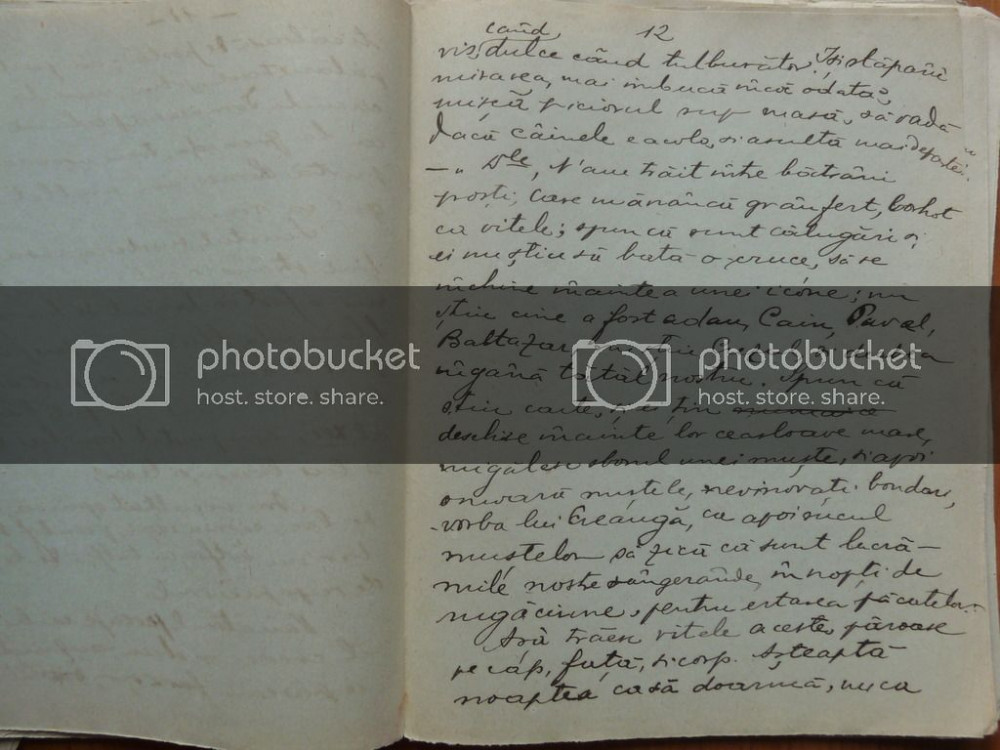 12
când,
vis, dulce când tulburător. Își stăpâni
mirarea, mai îmbucă încă odată,
mișcă piciorul sup masă, să vadă
dacă câinele e acolo, și ascultă mai departe.
— „ Dle, N'am trăit între bătrâni
proști, care mănâncă grâu fert, borhot
ca vitele; spun că sunt călugări și
ei nu știu să bată o cruce, să se
închine înaintea unei icóne; nu
știu cine a fost adam, Cain, Pavel,
Baltazar
îngână tatăl nostru. Spun că
știu carte, țin
deschise înainte lor ceasloave mari,
migălesc sborul unei muște, și apoi
omoară muștele, nevinovați bondari,
vorba lui Creangă, ca apoi sucul
muștelor să zică că sunt lacră-
mile nostre sângerânde, în nopți de
rugăciune, pentru ertarea păcatelor.
Așă trăesc vitele aceste, păroase
pe cap, față, și corp. Așteaptă
noaptea ca să doarmă, nu ca
photobucket
host. store. share.
photobucket
host. store. share.